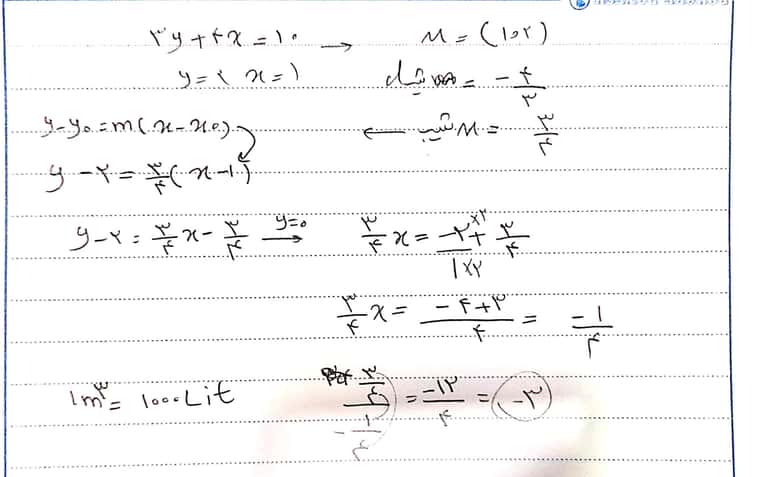 ۳y + ۴x = ۱۰ → M = (۱و۲)
y = ۲ x = ۱ شیب = -۴/۳
y - y₀ = m(x - x₀) ← شیب M = ۳/۴
y - ۲ = ۳/۴(x - ۱)
y - ۲ = ۳/۴ x - ۳/۴ y=۰ → ۳/۴ x = -۲/۱ + ۳/۴
۳/۴ x = (-۴+۳)/۴ = -۱/۴
۱m³ = ۱۰۰۰ Lit (۳/۴)/(-۱/۴) = -۱۲/۴ = -۳